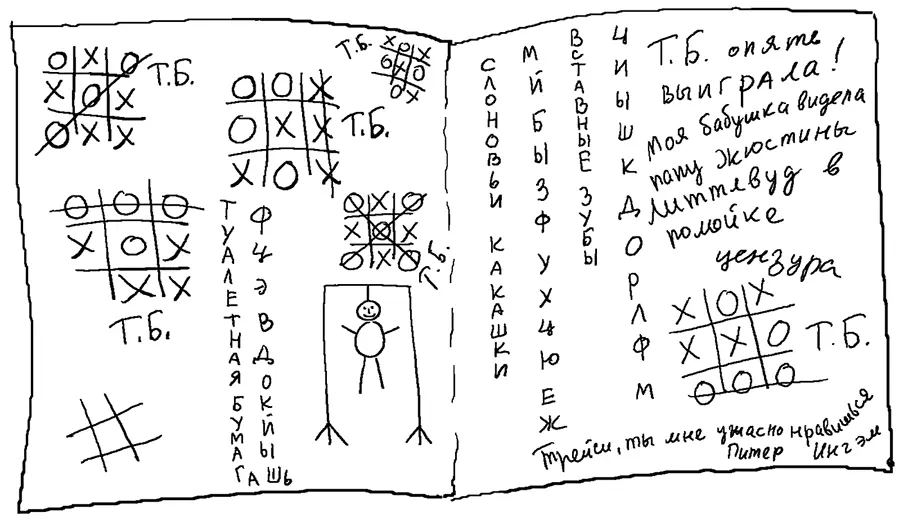 Т.Б.
Т.Б.
Т.Б.
Т.Б.
Т.Б.
ТУАЛЕТНАЯ БУМАГА
ФЦЭВДОКЙЫШЬ
СЛОНОВЬИ КАКАШКИ
МЙБЫЗФУХЦЮЕЖ
ВСТАВНЫЕ ЗУБЫ
ЦИЫШКДОРЛФМ
Т.Б. опять
ВЫИГРАЛА!
Моя бабушка видела
папу Жюстины
Литтлвуд в
помойке
цензура
Т.Б.
Трейси, ты мне ужасно нравишься
Питер Ингэм